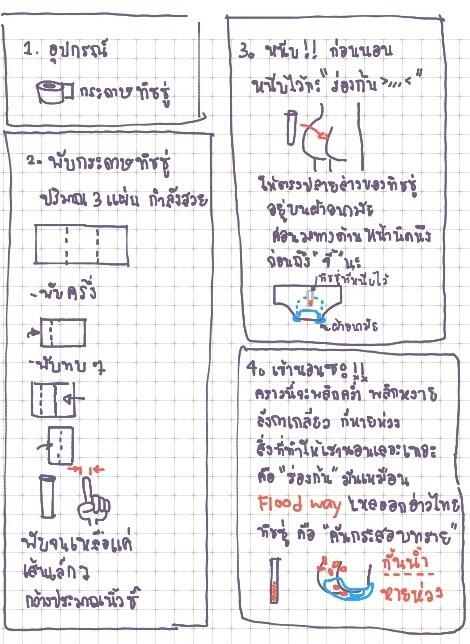 1. อุปกรณ์
กระดาษทิชชู่
2. พับกระดาษทิชชู่
ปริมาณ 3 แผ่น กำลังสวย
-พับครึ่ง
-พับทบๆ
พับจนเหลือแค่
เส้นเล็กๆ
กว้างประมาณนิ้วชี้
3. หนีบ!! ก่อนนอน
หนีบไว้กะ "ร่องก้น >,,,<"
ให้ตรงปลายล่างของทิชชู่
อยู่บนผ้าอนามัย
ค่อนมาทางด้านหน้านิดนึง
ก่อนถึง "จิ๊" นะ
ทิชชู่ที่หนีบไว้
ผ้าอนามัย
4. เข้านอนซะ!!
คราวนี้จะพลิกคว่ำ พลิกหงาย
ลังกาเกลียว ก็หายห่วง
สิ่งที่ทำให้เรานอนเลอะเทอะ
คือ "ร่องก้น" มันเหมือน
Flood way ไหลออกอ่าวไทย
ทิชชู่ คือ "คันกระสอบทราย"
กั้นน้ำ
หายห่วง